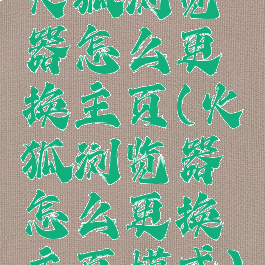 火狐浏览
器怎么更
换主页(火
狐浏览器
怎么更换
主页模式)